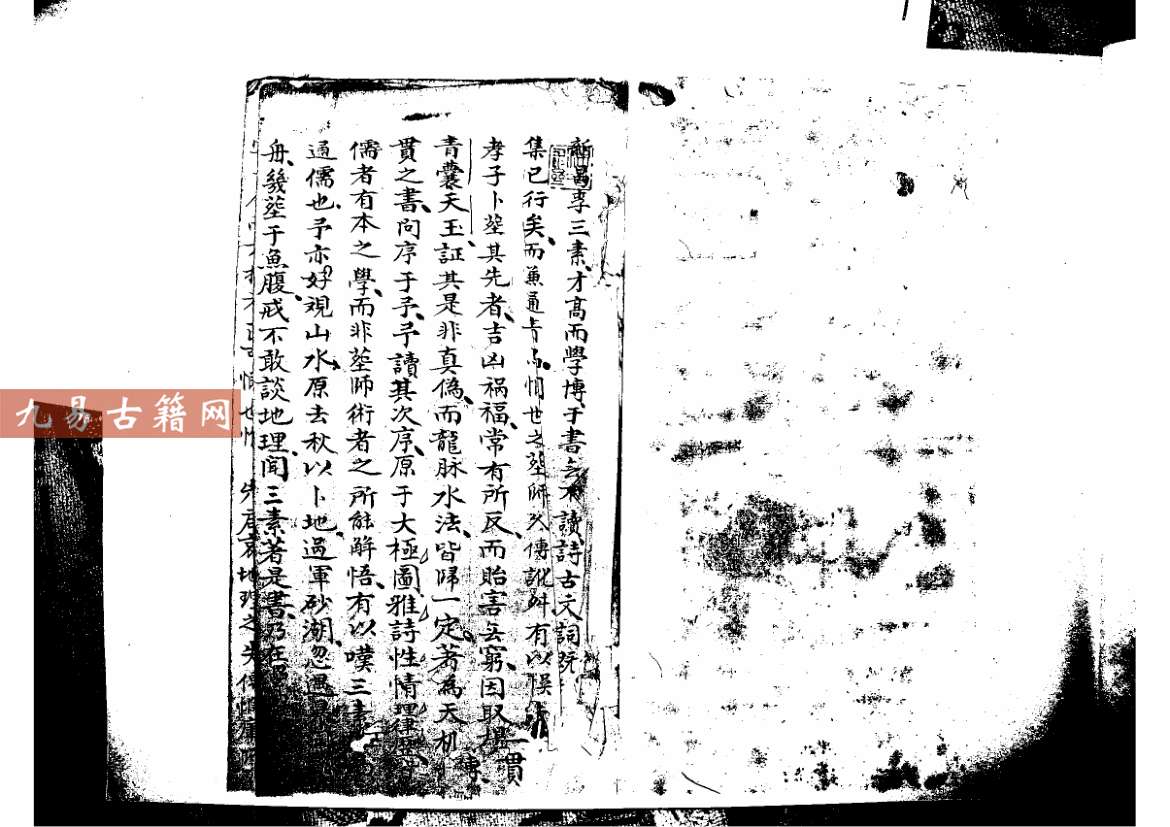 新昌李三素才高而學博于書無不讀詩古文詞既
集已行矣而兼通青烏憫世之塟師以傳訛舛有以悞
孝子卜塟其先者吉凶禍福常有所反而貽害無窮因取楊
青囊天玉証其是非真偽而龍脉水法皆歸一定著為天机一貫
貫之書向序于予予讀其次序原于大極圖雅詩性情理律
儒者有本之學而非塟師術者之所能解悟有以嘆三素
通儒也予亦好覌山水原去秋以卜地過軍砂湖忽遇
舟幾塟于魚腹戒不敢談地理閲三素著是書乃在
地理之失傳
九易古籍网